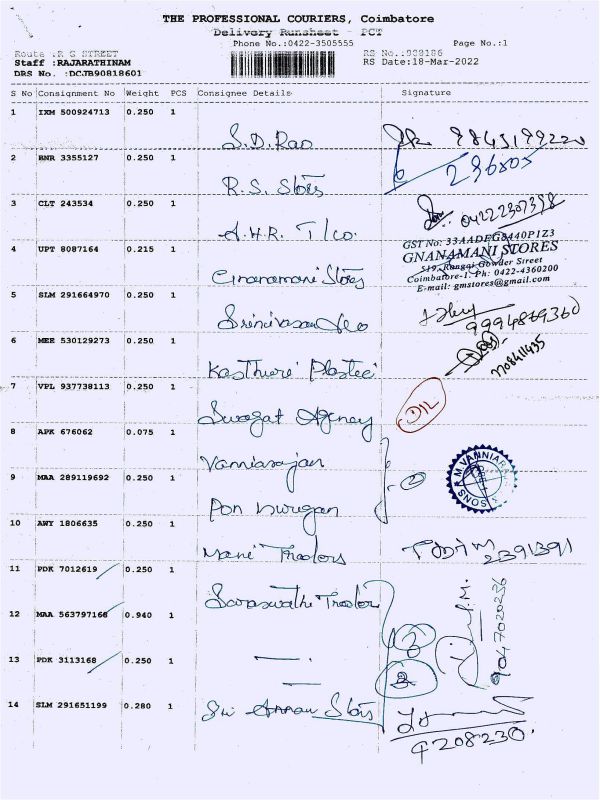 THE PROFESSIONAL COURIERS, Coimbatore
Delivery Runsheet - PCT
Phone No.:0422-3505555 Page No.:1
Route :R G STREET RS No.:908186
Staff :RAJARATHINAM RS Date:18-Mar-2022
DRS No. :DCJB90818601
S No Consignment No Weight PCS Consignee Details Signature
1 IXM 500924713 0.250 1
S.D. Rao 9843199220
2 BNR 3355127 0.250 1
236805
R.S. Stores
3 CLT 243534 0.250 1
04222307398
A.H.R. T/Co.
GST No: 33AADFG8440P1Z3
4 UPT 8087164 0.215 1
GNANAMANI STORES
519, Rangai Gowder Street
Coimbatore-1. Ph: 0422-4360200
Gnanamani Stores
E-mail: gmstores@gmail.com
5 SLM 291664970 0.250 1
Srinivasan
9994869360
6 MEE 530129273 0.250 1
7708411435
Kasthuri Plastic
7 VPL 937738113 0.250 1
D12
Swagat Agency
8 APK 676062 0.075 1
Vanniarajan
M VANNIARAJAN & SONS
9 MAA 289119692 0.250 1
2
Pon Murugan
10 AWY 1806635 0.250 1
Mani Traders 2391391
11 PDK 7012619 0.250 1
Saraswathi Traders
9047020236
12 MAA 563797168 0.940 1
3
13 PDK 3113168 0.250 1
3
14 SLM 291651199 0.280 1
Sri Annan Stores
4208230.